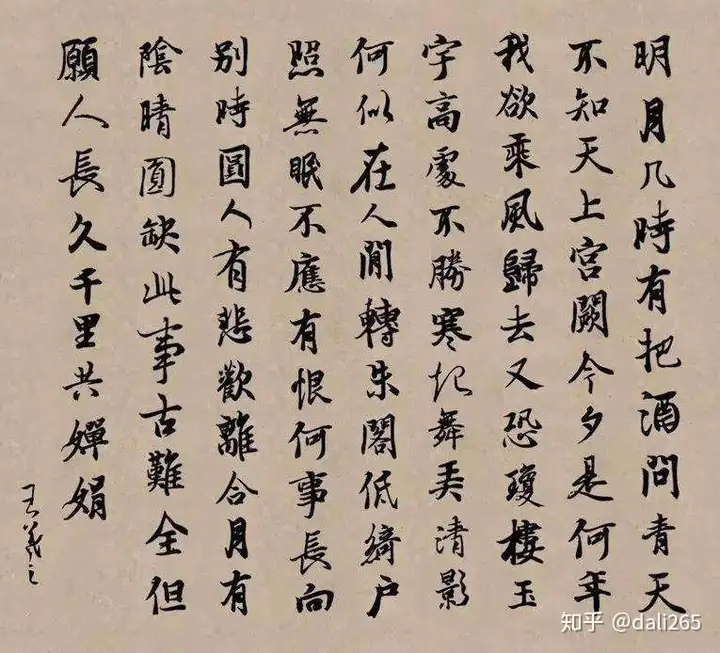 明月几時有把酒問青天
不知天上宮闕今夕是何年
我欲乘風歸去又恐瓊樓玉
宇高處不勝寒起舞弄清影
何似在人間轉朱閣低綺户
照無眠不應有恨何事長向
别時圓人有悲歡離合月有
陰晴圓缺此事古難全但
願人長久千里共嬋娟
王羲之
知乎 @dali265